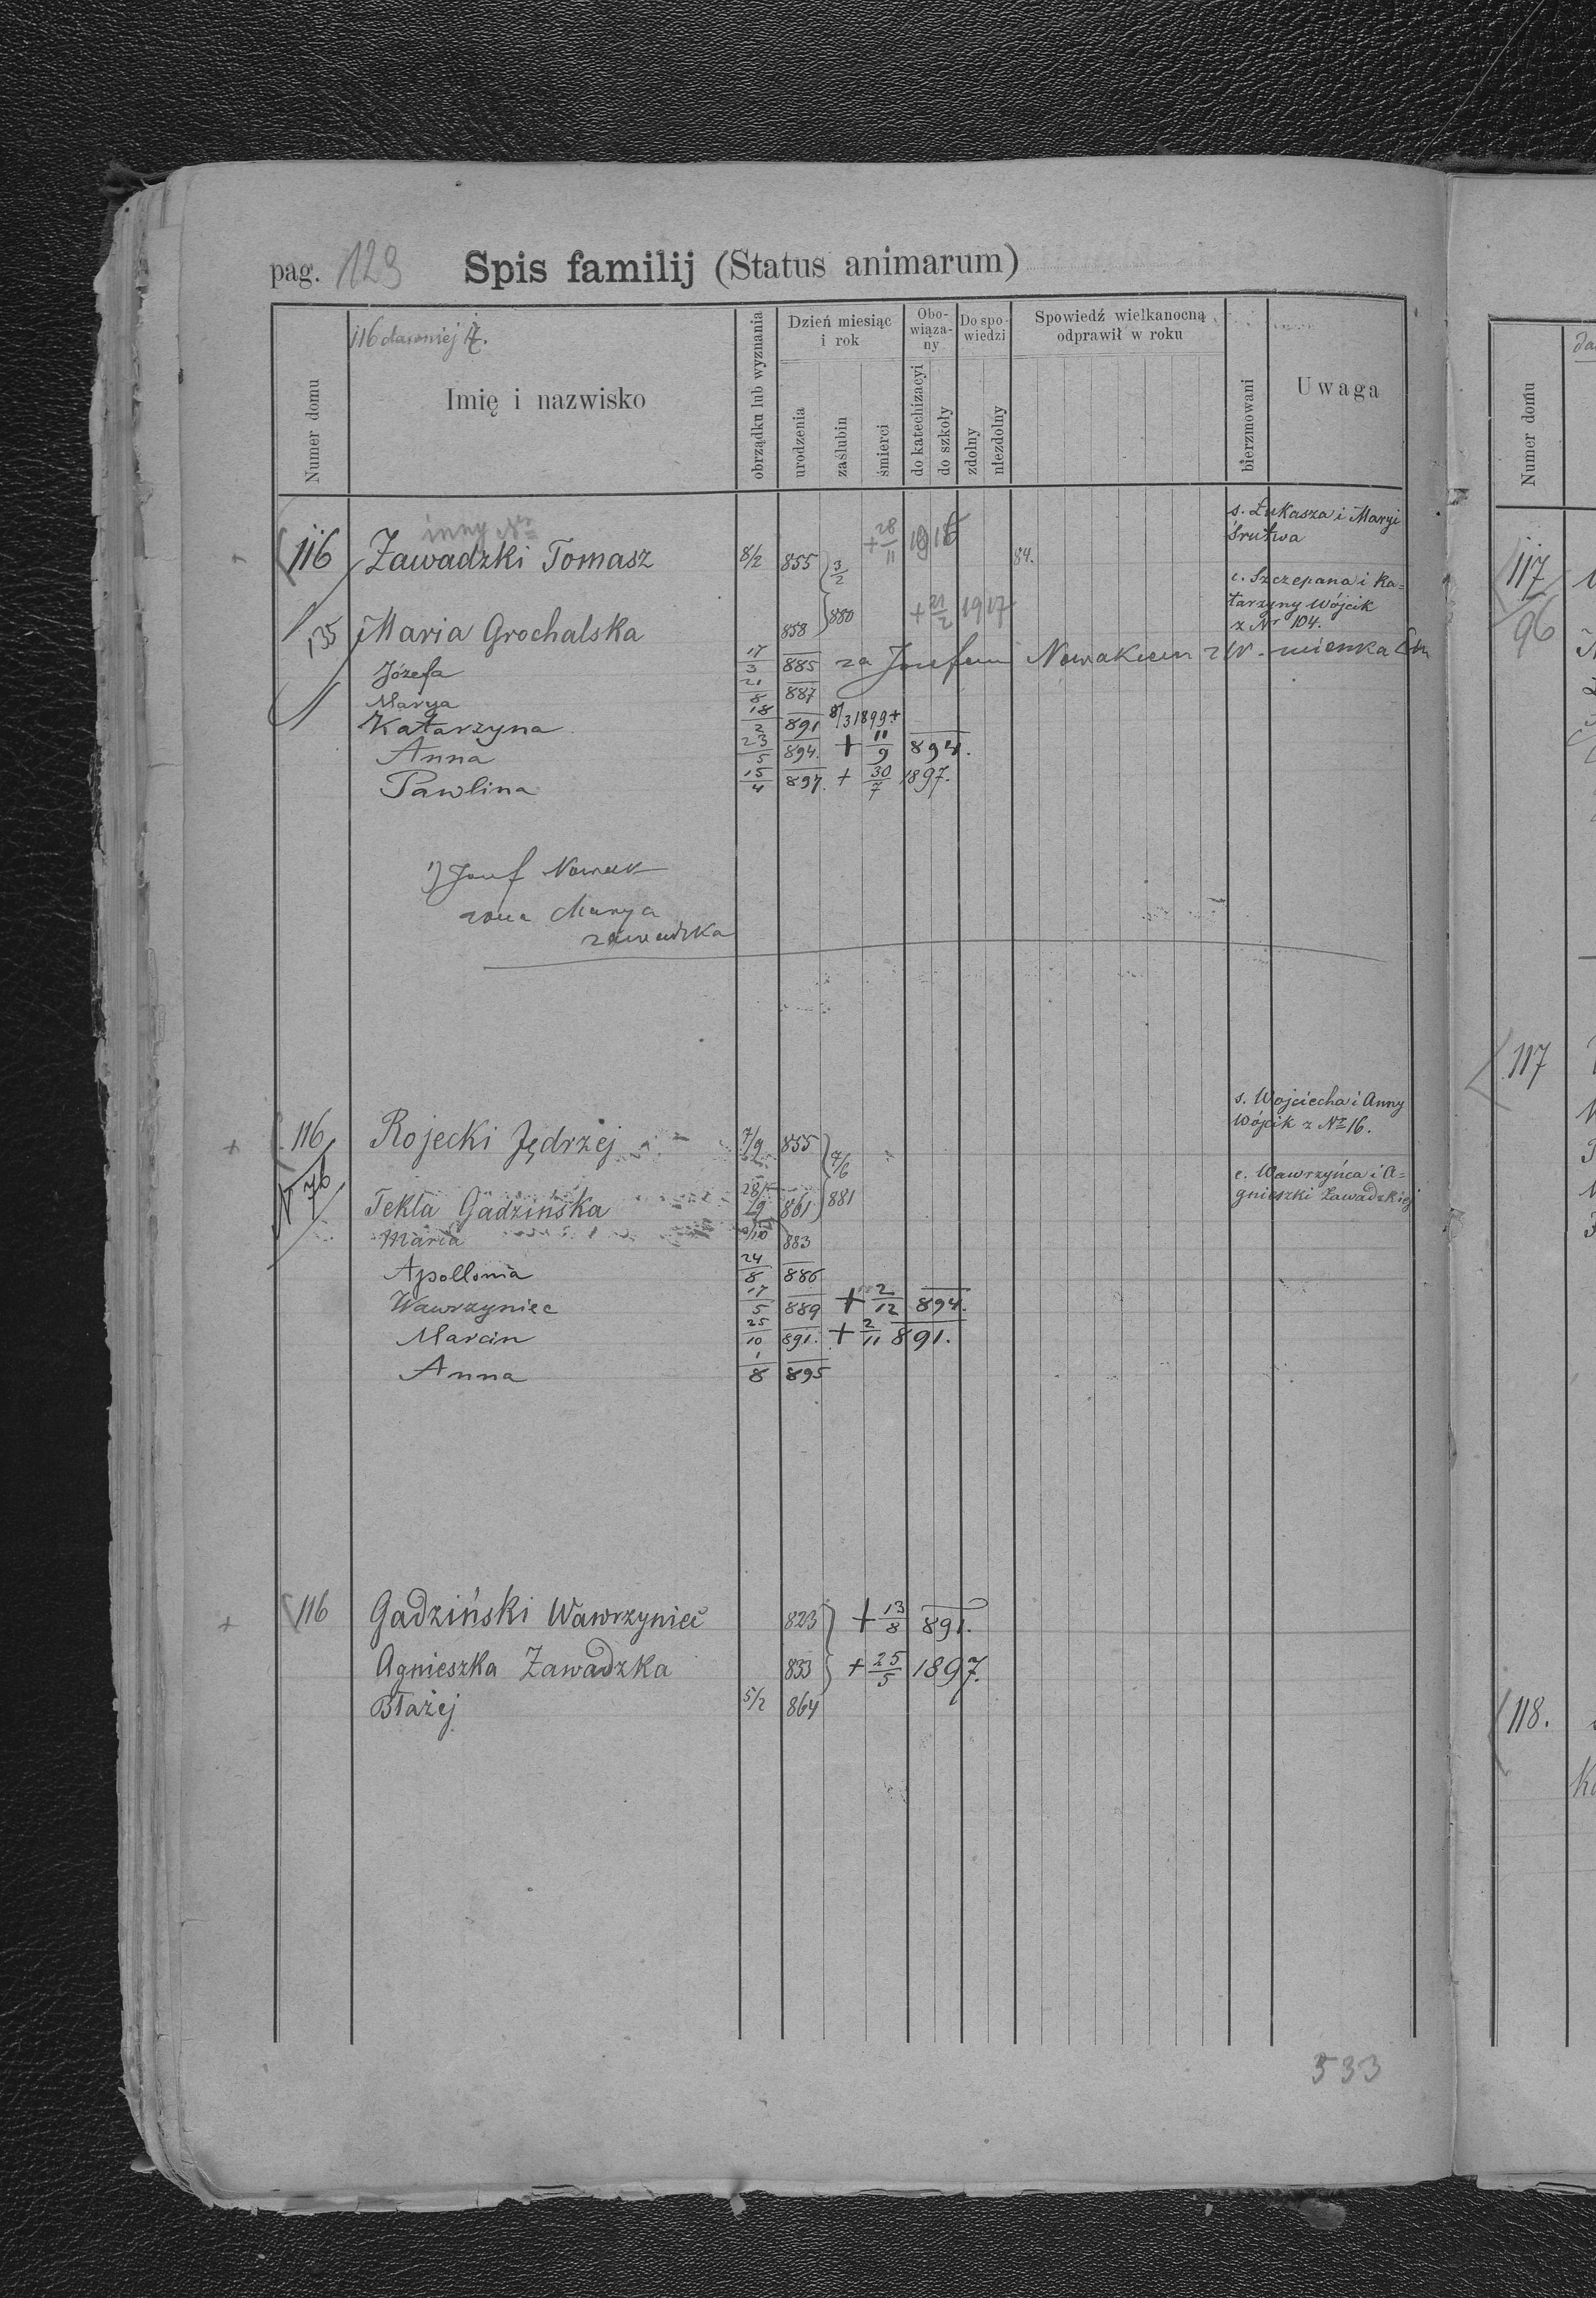 pag. 123 Spis familij (Status animarum)
116 dawniej
Numer domu
Imię i nazwisko
obrządku lub wyznania
Dzień miesiąc i rok
urodzenia
zaślubin
śmierci
Obowiąza-
ny
do katechizacyi
do szkoły
Do spo-
wiedzi
zdolny
niezdolny
Spowiedź wielkanocną
odprawił w roku
bierzmowani
Uwaga
inny Nr
s. Łukasza i Maryi
Śrutwa
116 Zawadzki Tomasz 8/2 855 3/2 + 28/11 1916 84.
c. Szczepana i Ka=
tarzyny Wójcik
z Nr 104.
135 Maria Grochalska 858 880 + 21/2 1917
Józefa 17/3 885 za Józefem Nowakiem
Marya 21/8 887
Katarzyna 18/2 891 8/3 1899 +
Anna 23/5 894. + 11/9 894.
Pawlina 15/4 897. + 30/7 1897.
1) Józef Nowak
żona Marya
zawadzka
s. Wojciecha i Anny
Wójcik z Nr 16.
116 Rojecki Jędrzej 7/9 855 7/6
c. Wawrzyńca i A=
gnieszki Zawadzkiej
N 76 Tekla Gadzińska 861 881
Maria 883
Apollonia 24/8 886
Wawrzyniec 17/5 889 + 2/12 894.
Marcin 25/10 891. + 2/11 891.
Anna 1/8 895
116 Gadziński Wawrzyniec 823 + 13/8 891.
Agnieszka Zawadzka 833 + 25/5 1897.
Błażej 5/2 864
533
Numer domu
117
96
117
118.